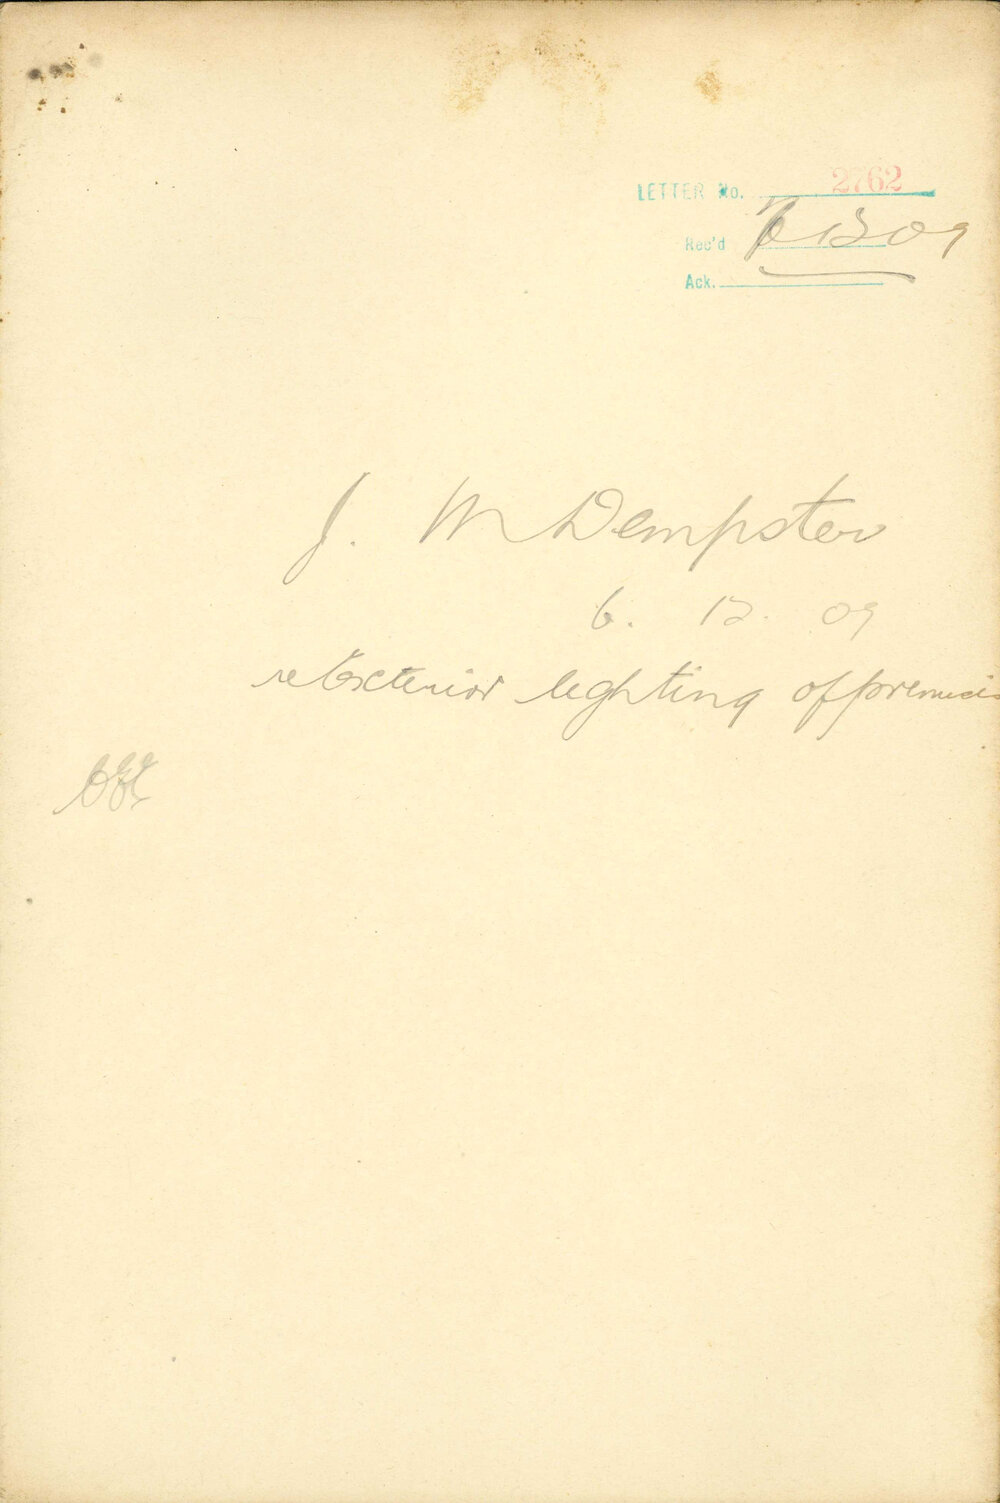 LETTER No. 2762
Rec'd 12 09
Ack.
J. M Dempster
6. 12. 09
re Exterior lighting of premecis